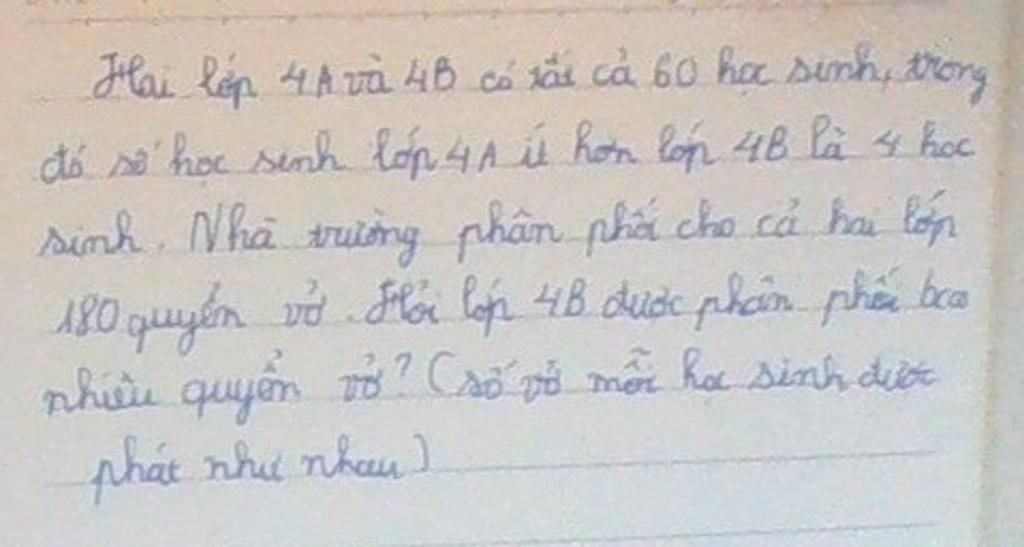 Hai lớp 4A và 4B có tất cả 60 học sinh, trong
đó số học sinh lớp 4A ít hơn lớp 4B là 4 học
sinh. Nhà trường phân phối cho cả hai lớp
180 quyển vở. Hỏi lớp 4B được phân phối bao
nhiêu quyển vở? (số vở mỗi học sinh được
phát như nhau)